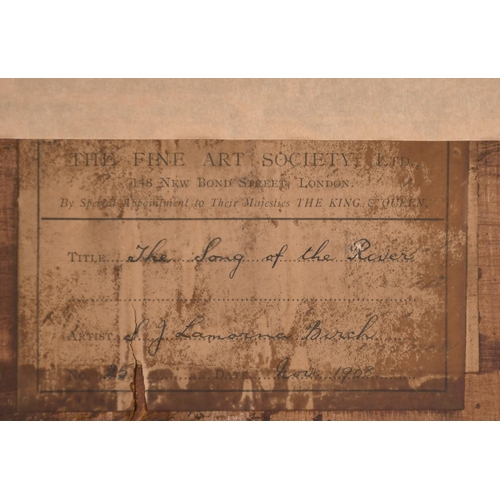 THE FINE ART SOCIETY, LTD.
148 NEW BOND STREET, LONDON.
By Special Appointment to Their Majesties THE KING & QUEEN.
TITLE The Song of the River
ARTIST S. J. Lamorna Birch
No. 25 DATE Nov. 1908